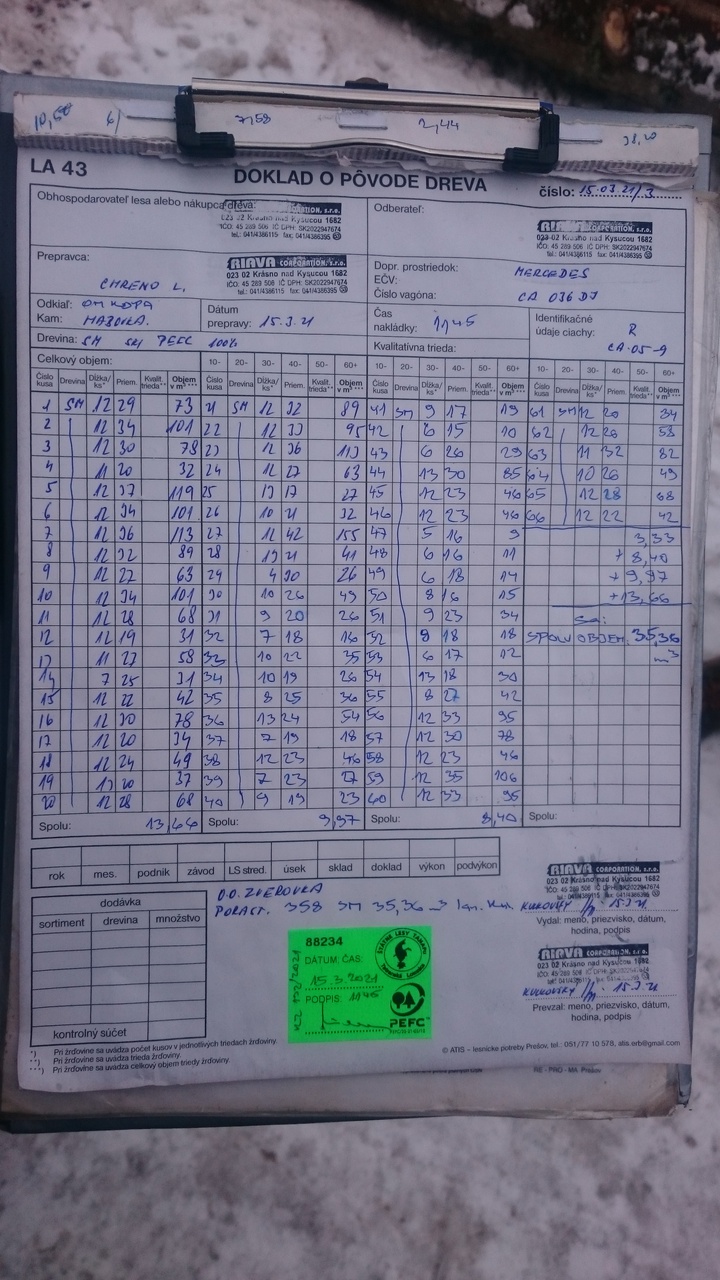 10,60 6) 7,58 2,44 38,20
LA 43
DOKLAD O PÔVODE DREVA
číslo: 15.03.21/3
Obhospodarovateľ lesa alebo nákupca dreva:
CORPORATION, s.r.o.
023 02 Krásno nad Kysucou 1682
IČO: 45 289 506 IČ DPH: SK2022947674
tel.: 041/4386115 fax: 041/4386395
Odberateľ:
RIAVA CORPORATION, s.r.o.
023 02 Krásno nad Kysucou 1682
IČO: 45 289 506 IČ DPH: SK2022947674
tel.: 041/4386115 fax: 041/4386395
Prepravca:
CHRENO L.
RIAVA CORPORATION, s.r.o.
023 02 Krásno nad Kysucou 1682
IČO: 45 289 506 IČ DPH: SK2022947674
tel.: 041/4386115 fax: 041/4386395
Dopr. prostriedok: MERCEDES
EČV:
Číslo vagóna: CA 036 DJ
Odkiaľ: OM KOPA
Kam: HABOVKA.
Dátum
prepravy: 15.3.21
Čas
nakládky: 1145
Identifikačné
údaje ciachy: R
CA-05-9
Drevina: SM PEFC 100%
Kvalitatívna trieda:
Celkový objem: 10- 20- 30- 40- 50- 60+ 10- 20- 30- 40- 50- 60+ 10- 20- 30- 40- 50- 60+
Číslo kusa Drevina Dĺžka/ks* Priem. Kvalit. trieda** Objem v m³ *** Číslo kusa Drevina Dĺžka/ks* Priem. Kvalit. trieda** Objem v m³ *** Číslo kusa Drevina Dĺžka/ks* Priem. Kvalit. trieda** Objem v m³ *** Číslo kusa Drevina Dĺžka/ks* Priem. Kvalit. trieda** Objem v m³ ***
1 SM 12 29 73 21 SM 12 32 89 41 SM 9 17 19 61 SM 12 20 34
2 12 34 101 22 12 33 95 42 6 15 10 62 12 26 58
3 12 30 78 23 12 36 113 43 6 26 29 63 11 32 82
4 11 20 32 24 12 27 63 44 13 30 85 64 10 26 49
5 12 37 119 25 13 17 27 45 12 23 46 65 12 28 68
6 12 34 101 26 10 21 32 46 12 23 46 66 12 22 42
7 12 36 113 27 11 42 155 47 5 16 9 3,33
8 12 32 89 28 13 21 41 48 6 16 11 + 8,40
9 12 27 63 29 4 30 26 49 6 18 14 + 9,97
10 12 34 101 30 10 26 49 50 8 16 15 +13,66
11 12 28 68 31 9 20 26 51 9 23 34
12 12 19 31 32 7 18 16 52 8 18 18 SPOLU OBJEM. 35,36 m³
13 11 27 58 33 10 22 35 53 6 17 12
14 7 25 31 34 10 19 26 54 13 18 30
15 12 22 42 35 8 25 36 55 8 27 42
16 12 30 78 36 13 24 54 56 12 33 95
17 12 20 34 37 7 19 18 57 12 30 78
18 12 24 49 38 12 23 46 58 12 23 46
19 13 20 37 39 7 23 27 59 12 35 106
20 12 28 68 40 9 19 23 60 12 33 95
Spolu: 13,66 Spolu: 9,97 Spolu: 8,40 Spolu:
rok mes. podnik závod LS stred. úsek sklad doklad výkon podvýkon
dodávka
sortiment drevina množstvo
kontrolný súčet
O.O. ZVEROVKA
PORAST. 358 SM 35,36
88234
DÁTUM: ČAS:
15.3.2021
PODPIS: 1145
ŠTÁTNE LESY TANAPU
PEFC
RIAVA CORPORATION, s.r.o.
023 02 Krásno nad Kysucou 1682
IČO: 45 289 506 IČ DPH: SK2022947674
15.3.21
Vydal: meno, priezvisko, dátum,
hodina, podpis
RIAVA CORPORATION, s.r.o.
023 02 Krásno nad Kysucou 1682
15.3.21
Prevzal: meno, priezvisko, dátum,
hodina, podpis
*) Pri žrďovine sa uvádza počet kusov v jednotlivých triedach žrďoviny.
**) Pri žrďovine sa uvádza trieda žrďoviny.
***) Pri žrďovine sa uvádza celkový objem triedy žrďoviny.
© ATIS - lesnícke potreby Prešov, tel.: 051/77 10 578, atis.erb@gmail.com